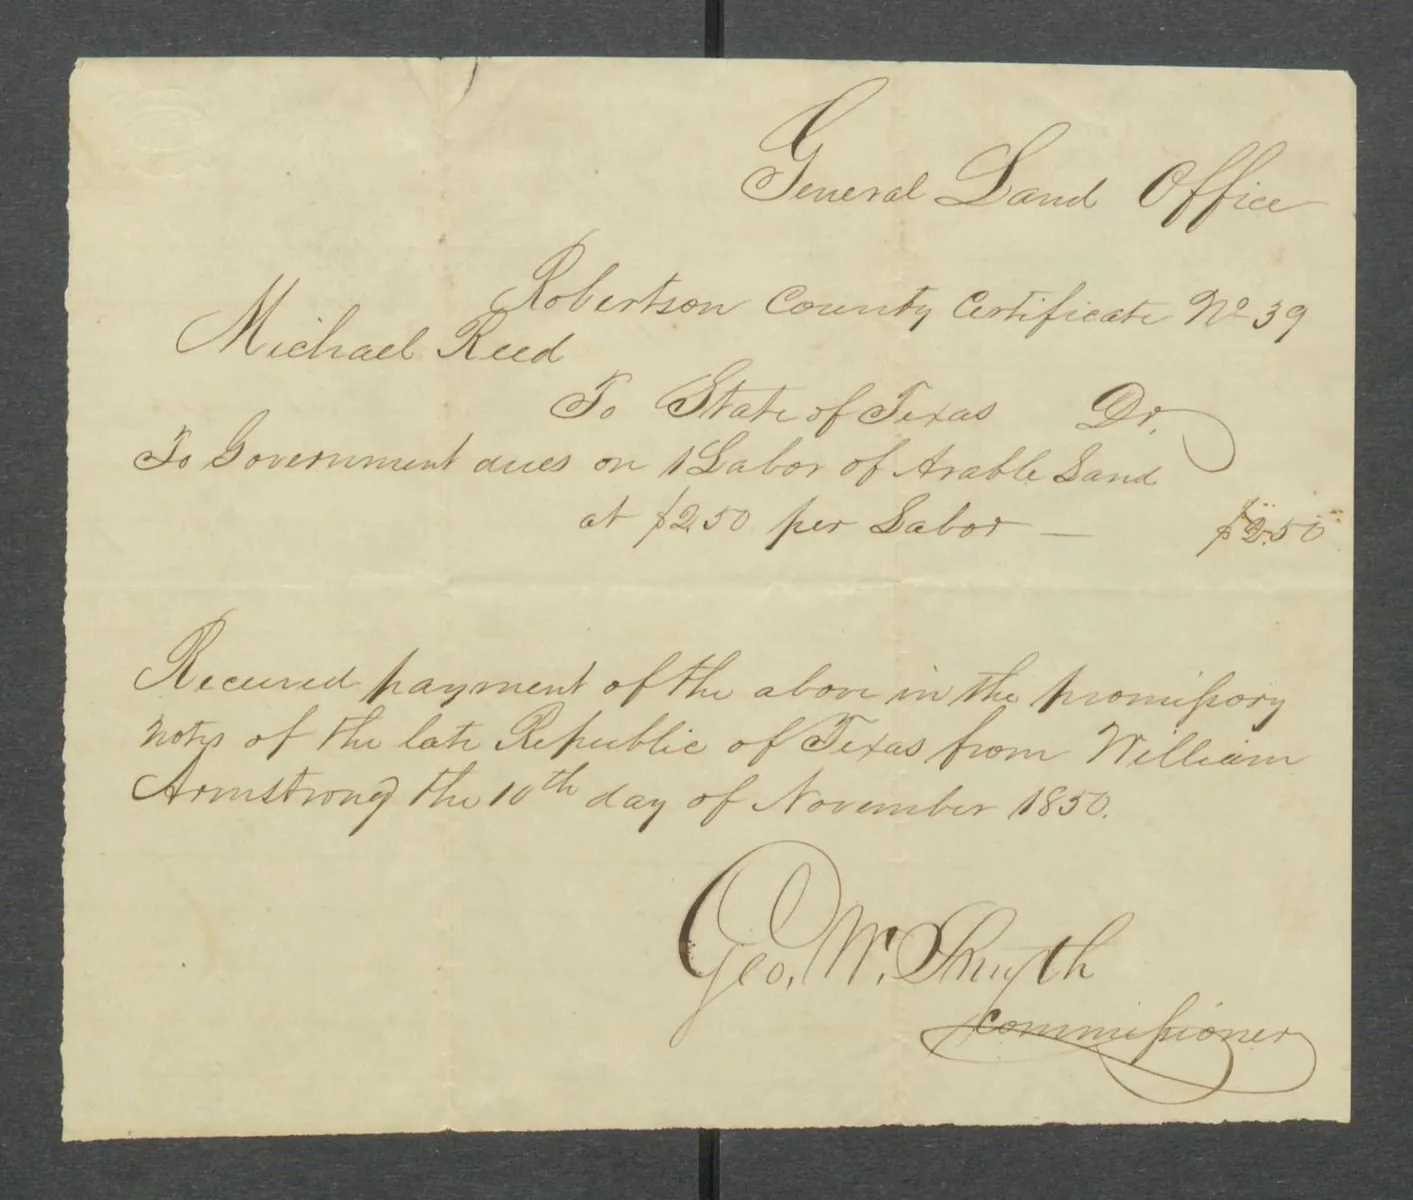 General Land Office
Robertson County Certificate No 39
Michael Reed
To State of Texas Dr.
To Government dues on 1 Labor of Arable Land
at $2.50 per Labor — $2.50
Received payment of the above in the promissory
notes of the late Republic of Texas from William
Armstrong the 10th day of November 1850.
Geo. W. Smyth
Commissioner